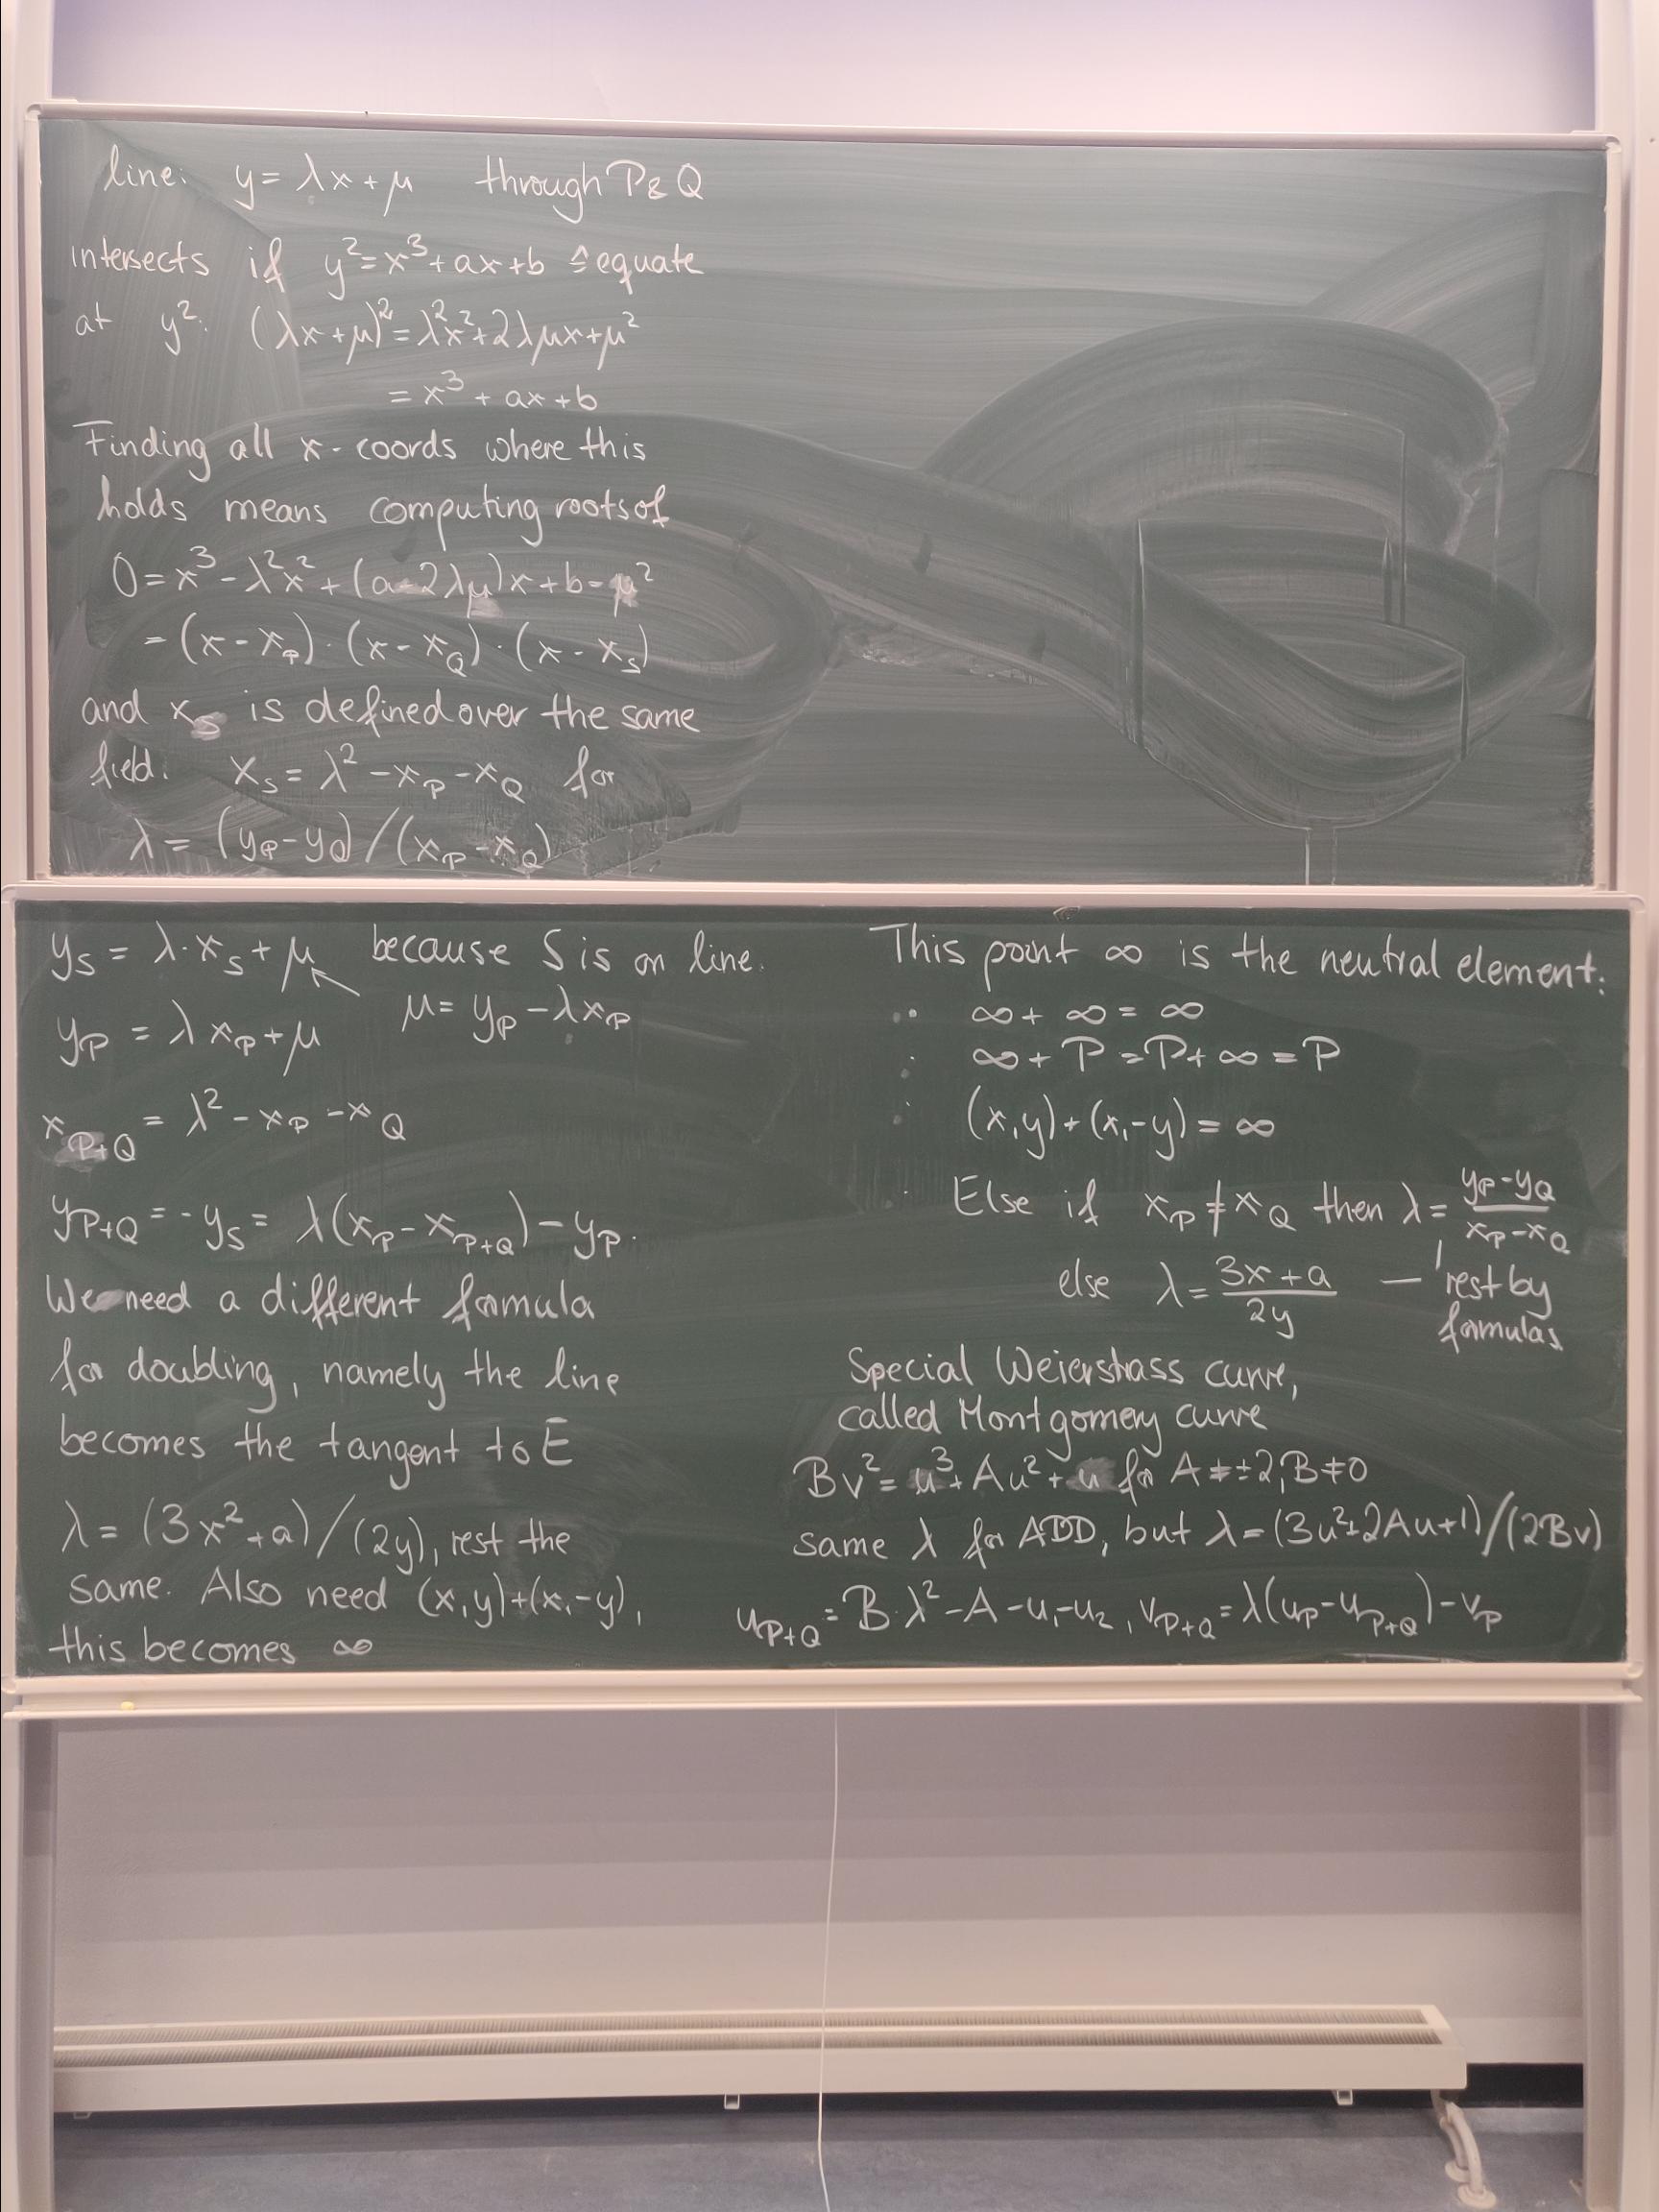 line: y = λx + μ through P & Q
intersects if y² = x³ + ax + b ≙ equate
at y²: (λx + μ)² = λ²x² + 2λμx + μ²
= x³ + ax + b
Finding all x-coords where this
holds means computing roots of
0 = x³ - λ²x² + (a - 2λμ)x + b - μ²
= (x - x_P) · (x - x_Q) · (x - x_S)
and x_S is defined over the same
field. x_S = λ² - x_P - x_Q for
λ = (y_P - y_Q) / (x_P - x_Q)
y_S = λ · x_S + μ because S is on line.
y_P = λ x_P + μ μ = y_P - λx_P
x_{P+Q} = λ² - x_P - x_Q
y_{P+Q} = -y_S = λ(x_P - x_{P+Q}) - y_P.
We need a different formula
for doubling, namely the line
becomes the tangent to E
λ = (3x² + a) / (2y), rest the
same. Also need (x,y) + (x,-y),
this becomes ∞
This point ∞ is the neutral element:
∞ + ∞ = ∞
∞ + P = P + ∞ = P
(x,y) + (x,-y) = ∞
Else if x_P ≠ x_Q then λ = \frac{y_P - y_Q}{x_P - x_Q}
else λ = \frac{3x + a}{2y} — rest by
formulas
Special Weierstrass curve,
called Montgomery curve
Bv² = u³ + Au² + u for A ≠ ±2, B ≠ 0
same λ for ADD, but λ = (3u² + 2Au + 1) / (2Bv)
u_{P+Q} = B · λ² - A - u₁ - u₂, v_{P+Q} = λ(u_P - u_{P+Q}) - v_P